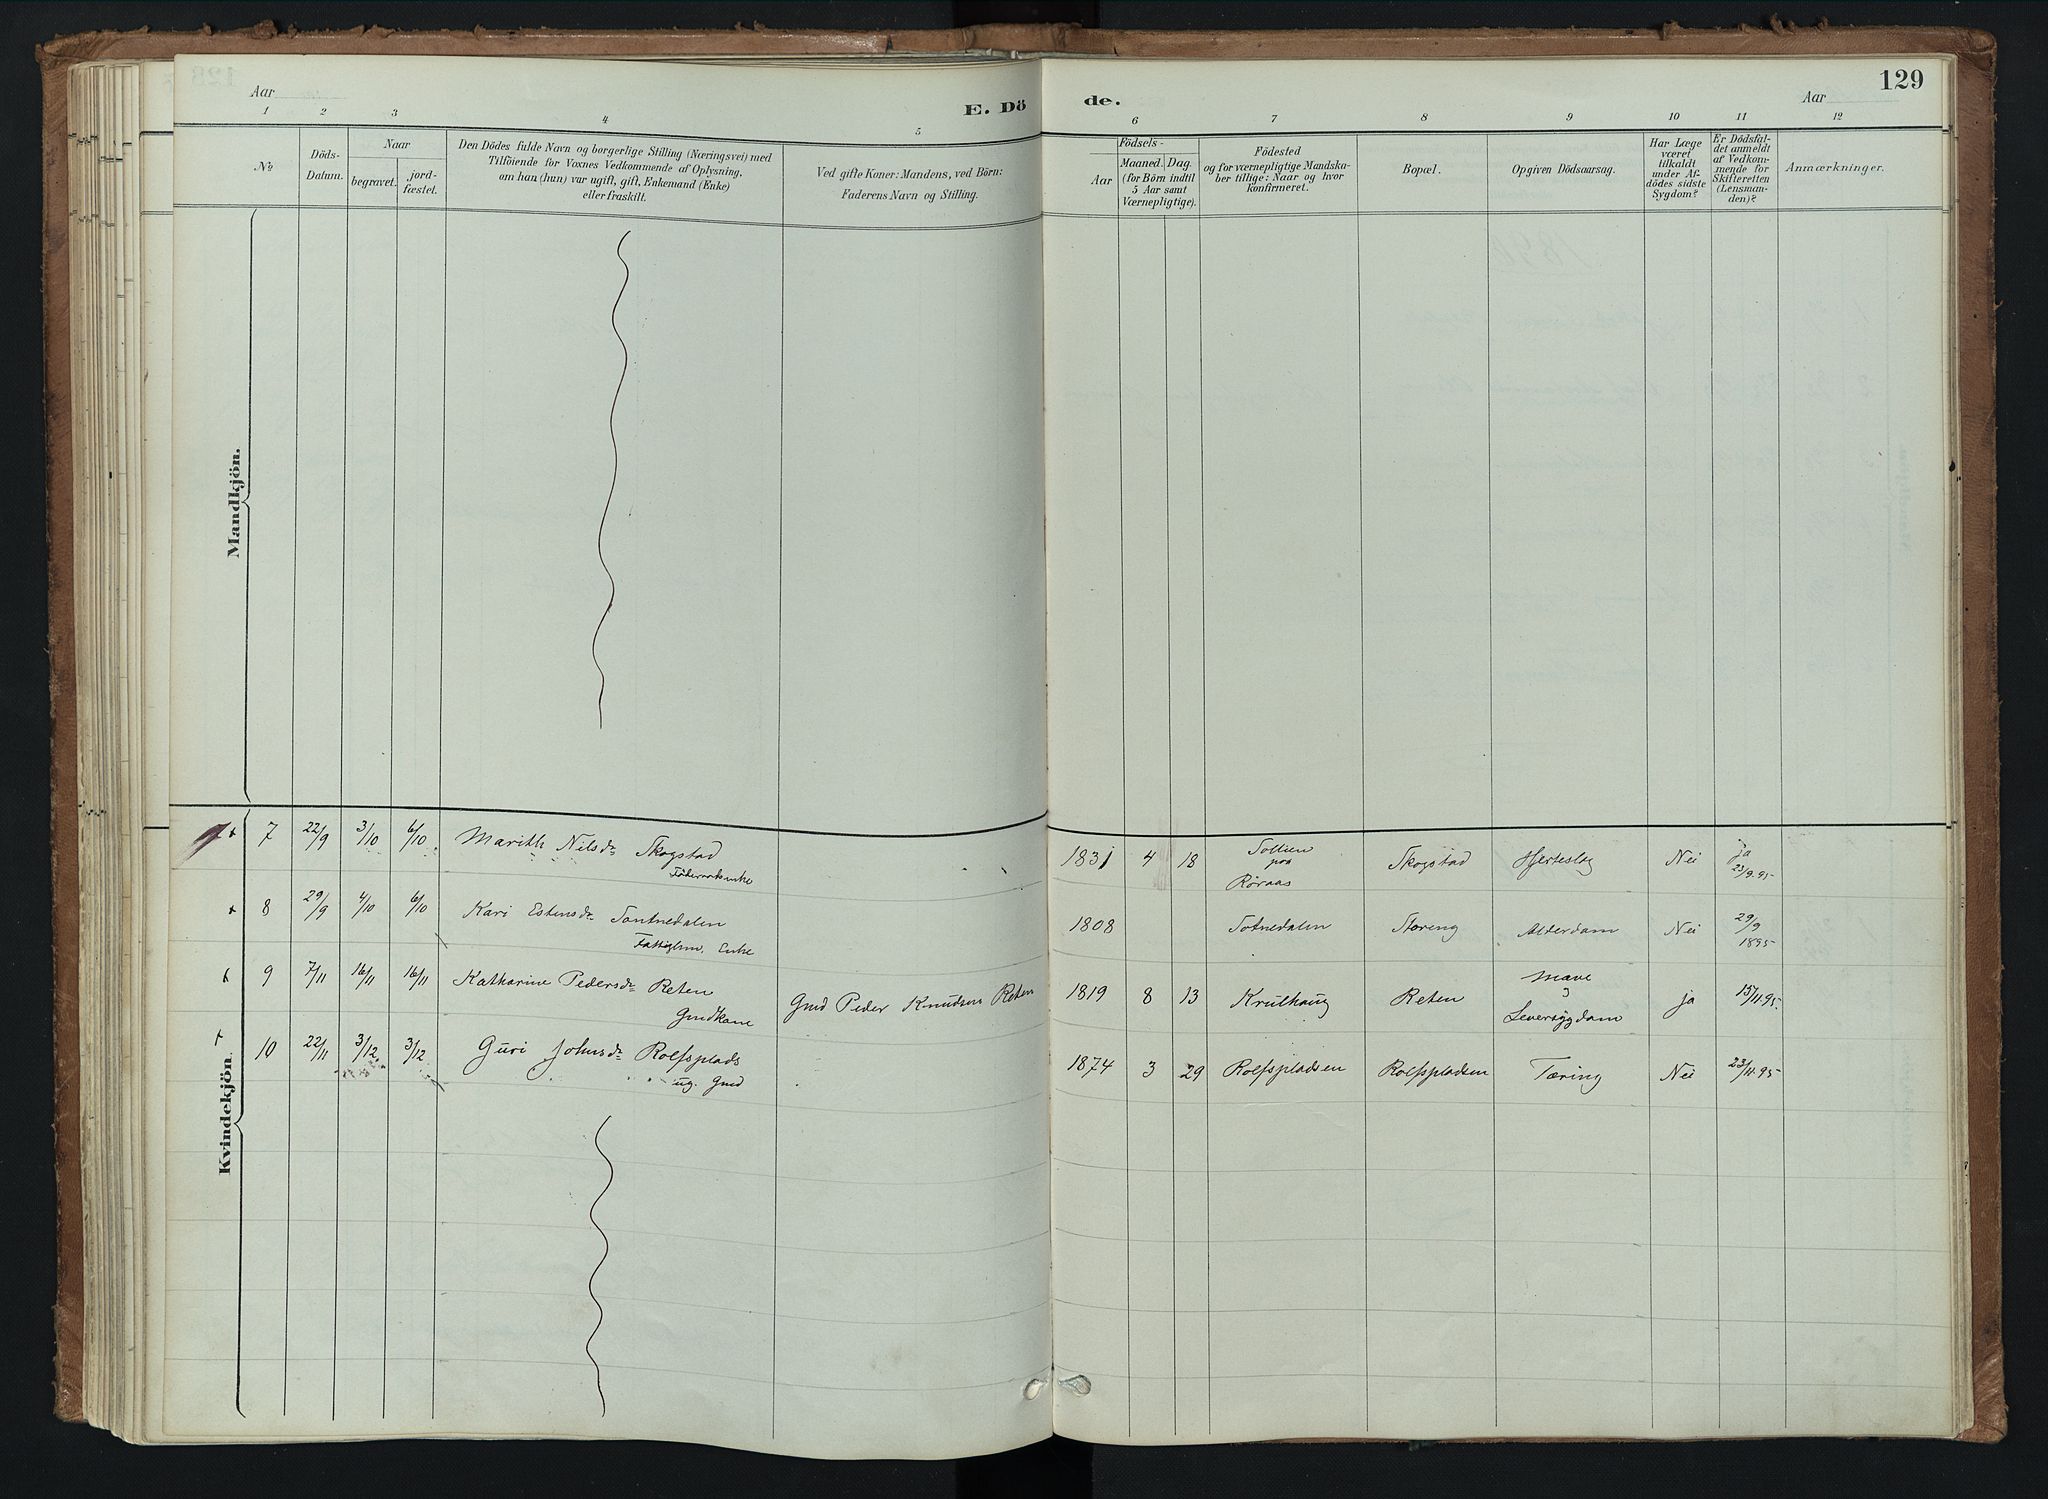 129
Aar
E. Dö
de.
Aar
1 2 3 4 5 6 7 8 9 10 11 12
No.
Döds-
Datum.
Naar
begravet.
jord-
fæstet.
Den Dödes fulde Navn og borgerlige Stilling (Næringsvei) med
Tilföiende for Voxnes Vedkommende af Oplysning,
om han (hun) var ugift, gift, Enkemand (Enke)
eller fraskilt.
Ved gifte Koner: Mandens, ved Börn:
Faderens Navn og Stilling.
Födsels-
Aar
Maaned. Dag.
(for Börn indtil
5 Aar samt
Værnepligtige).
Födested
og for værnepligtige Mandska-
ber tillige: Naar og hvor
konfirmeret.
Bopæl.
Opgiven Dödsaarsag.
Har Læge
været
tilkaldt
under Af-
dödes sidste
Sygdom?
Er Dödsfal-
det anmeldt
af Vedkom-
mende for
Skifteretten
(Lensman-
den)?
Anmærkninger.
Mandkjön.
Kvindekjön.
7 22/9 3/10 6/10 Marith Nilsdr. Skogstad
1831 4 18 Tollien
paa
Røraas
Skogstad Hjerteslag Nei ja
23/9.95
8 29/9 4/10 6/10 Kari Estensdr. Tontnedalen
Enke
1808 Totnedalen Støring Alderdom Nei 29/9
1895
9 7/11 16/11 16/11 Katharine Pedersdr. Reten
Gmdkone
Gmd Peder Knudsen Reten
1819 8 13 Krulhaug Reten Mave
Leversygdom
ja 15/11.95.
10 22/11 3/12. 3/12 Guri Johnsdr. Rolfsplads
ug. Gmd
1874 3 29 Rolfspladsen Rolfspladsen Tæring Nei 23/11.95